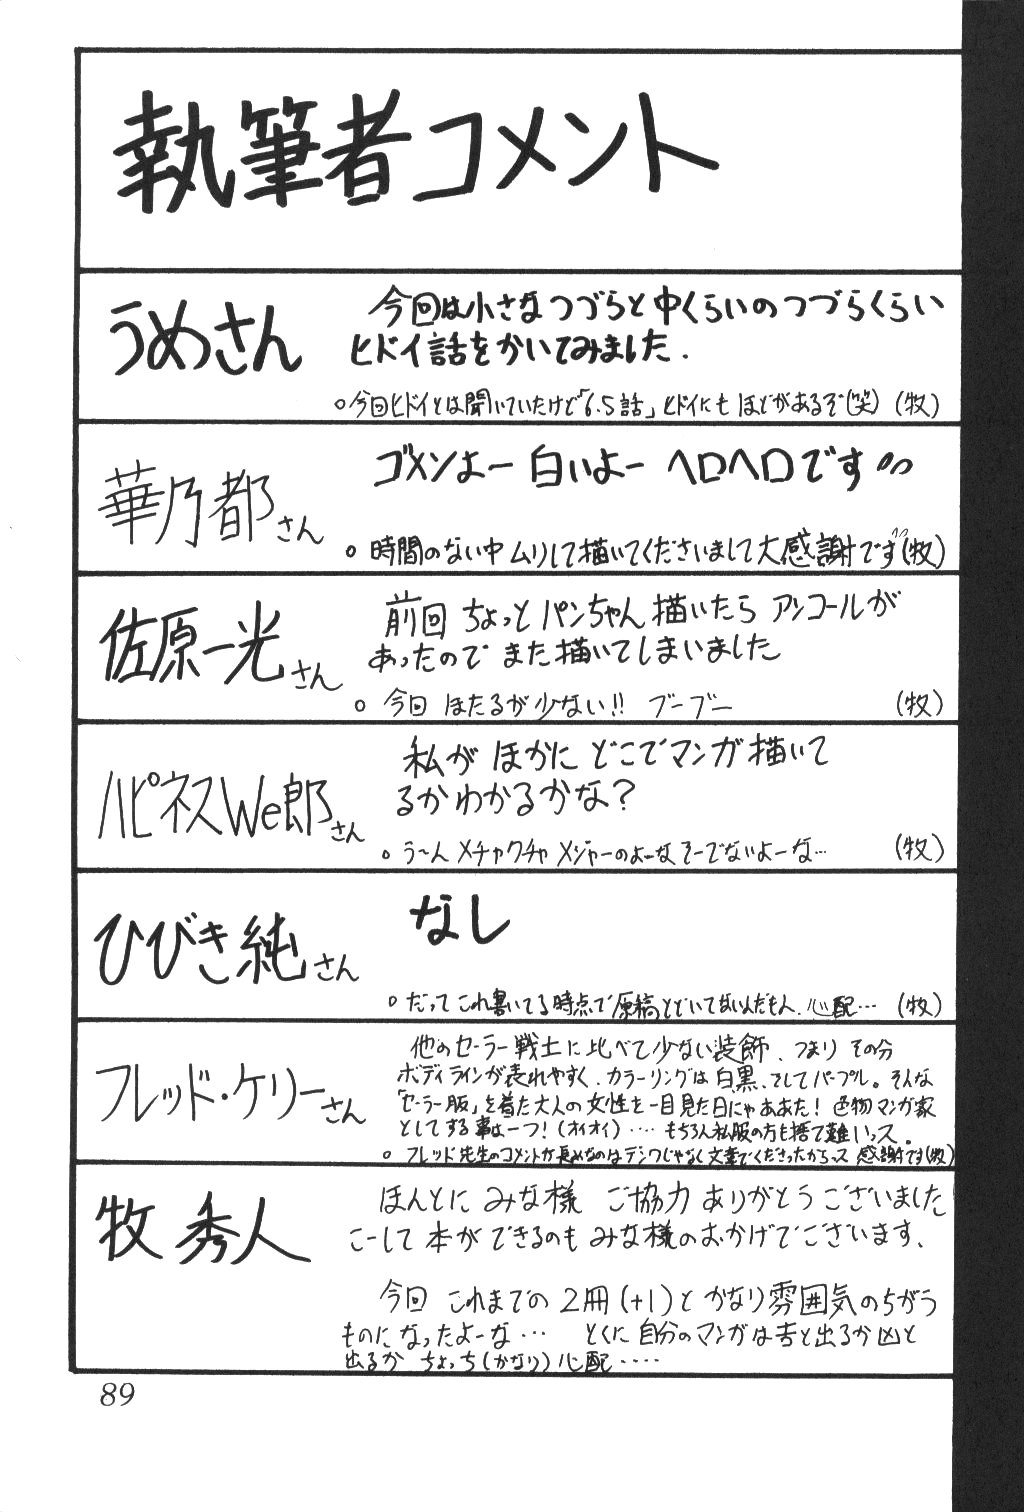 執筆者コメント
うめさん
今回は小さなつづらと中くらいのつづらくらい
ヒドイ話をかいてみました.
○今回ヒドイとは聞いていたけど「6.5話」ヒドイにもほどがあるぞ(笑) (牧)
華乃都さん
ゴメンよー 白いよー ヘロヘロです
○時間のない中ムリして描いてくださいまして大感謝です(牧)
佐原一光さん
前回 ちょっと パンちゃん 描いたら アンコールが
あったので また 描いてしまいました
○今回 ほたるが少ない!! ブーブー (牧)
ハピネスWe郎さん
私が ほかに どこでマンガ描いて
るかわかるかな?
○う〜ん メチャクチャ メジャーのよーな そーでないよーな… (牧)
ひびき純さん
なし
○だって これ書いてる時点で原稿とどいてないんだもん. 心配… (牧)
フレッド・ケリーさん
他のセーラー戦士に比べて少ない装飾、つまり その分
ボディラインが表れやすく、カラーリングは白黒、そしてパープル。そんな
「セーラー服」を着た大人の女性を一目見た日にゃああた! 色物マンガ家
としてする事は一つ! (オイオイ)‥‥もちろん私服の方も捨て難いっス.
○フレッド先生のコメントが長めなのはデンワじゃなく文章でくださったからっス 感謝です(牧)
牧 秀人
ほんとに みな様 ご協力 ありがとうございました
こーして 本ができるのも みな様のおかげでございます、
今回 これまでの 2冊(+1)と かなり雰囲気のちがう
ものになったよーな… とくに自分のマンガは吉と出るか凶と
出るか ちょっち(かなり)心配‥‥‥
89